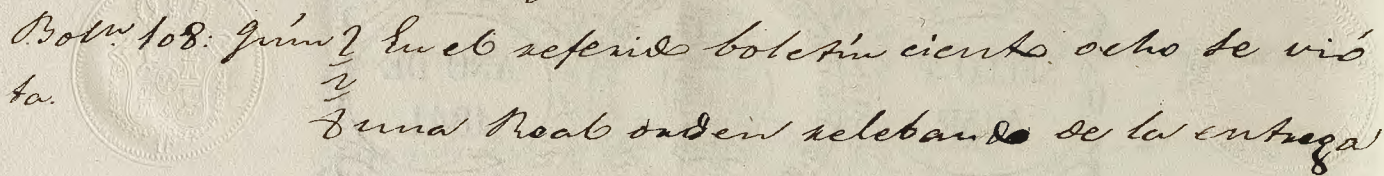 Boln. 108: Quin
ta.
En el referido boletín ciento ocho se vió
una Real orden relebando de la entrega